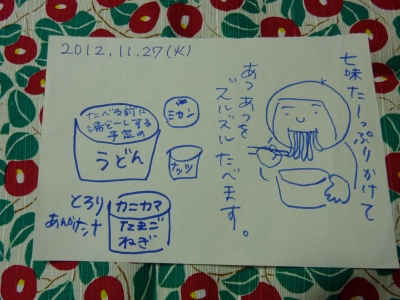 2012.11.27(火)
七味たーっぷりかけて
あつあつを
ズルズルたべます。
たべる前に
湯どーしする
予定の
うどん
ミカン
ナッツ
とろり
あんかけ汁
カニカマ
たまご
ねぎ